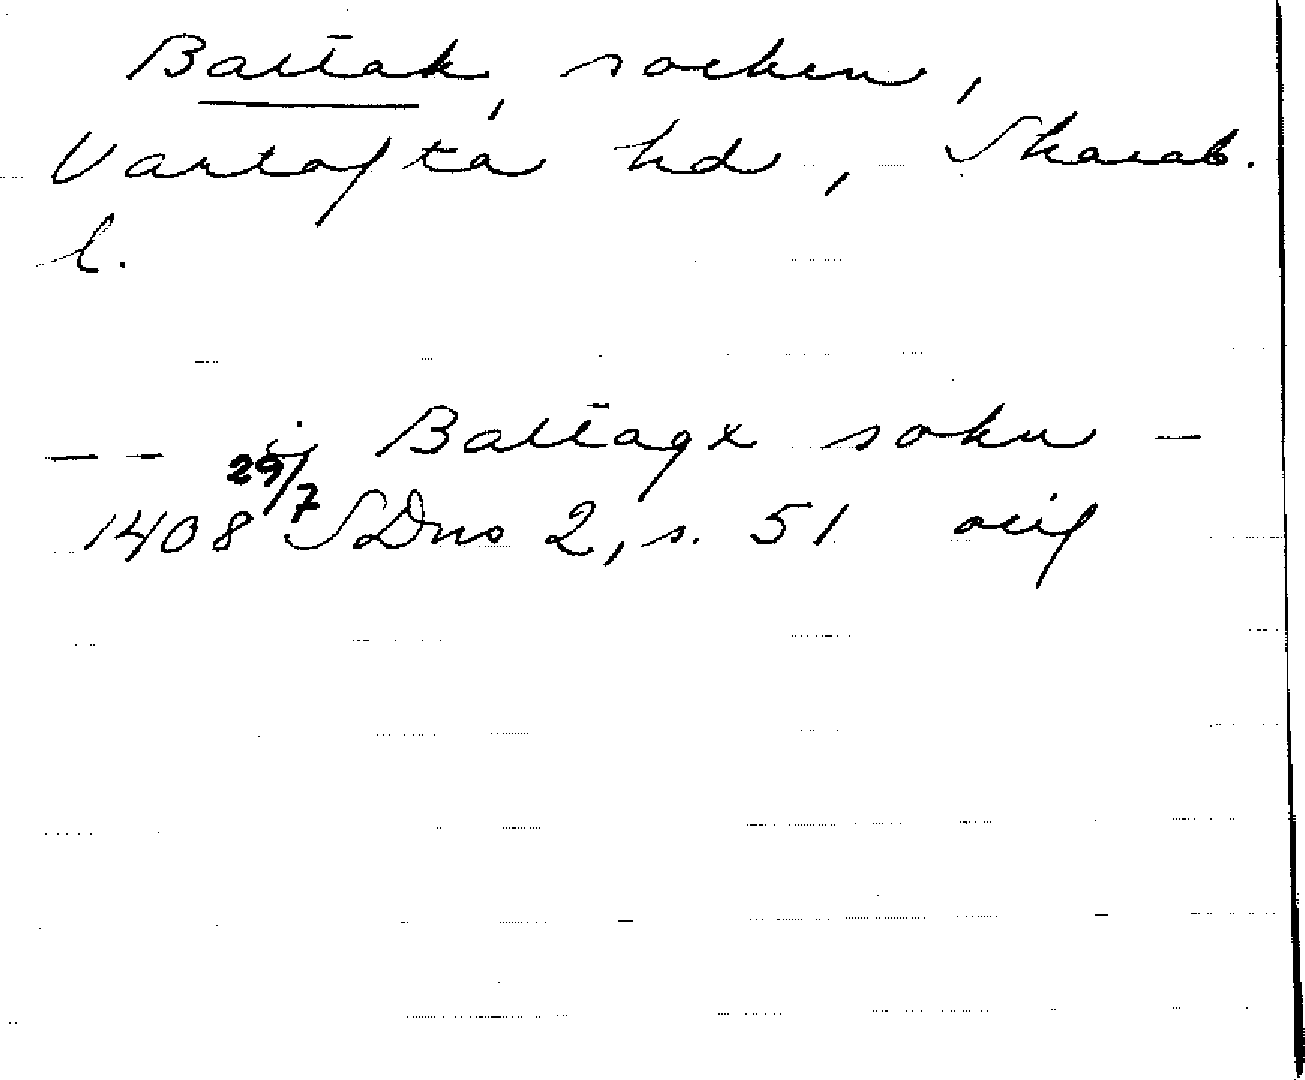 Baltak, socken,
Vartofta hd, Skarab.
l.
— - j Baltagx sokn —
29/7
1408 SDns 2, s. 51 orig